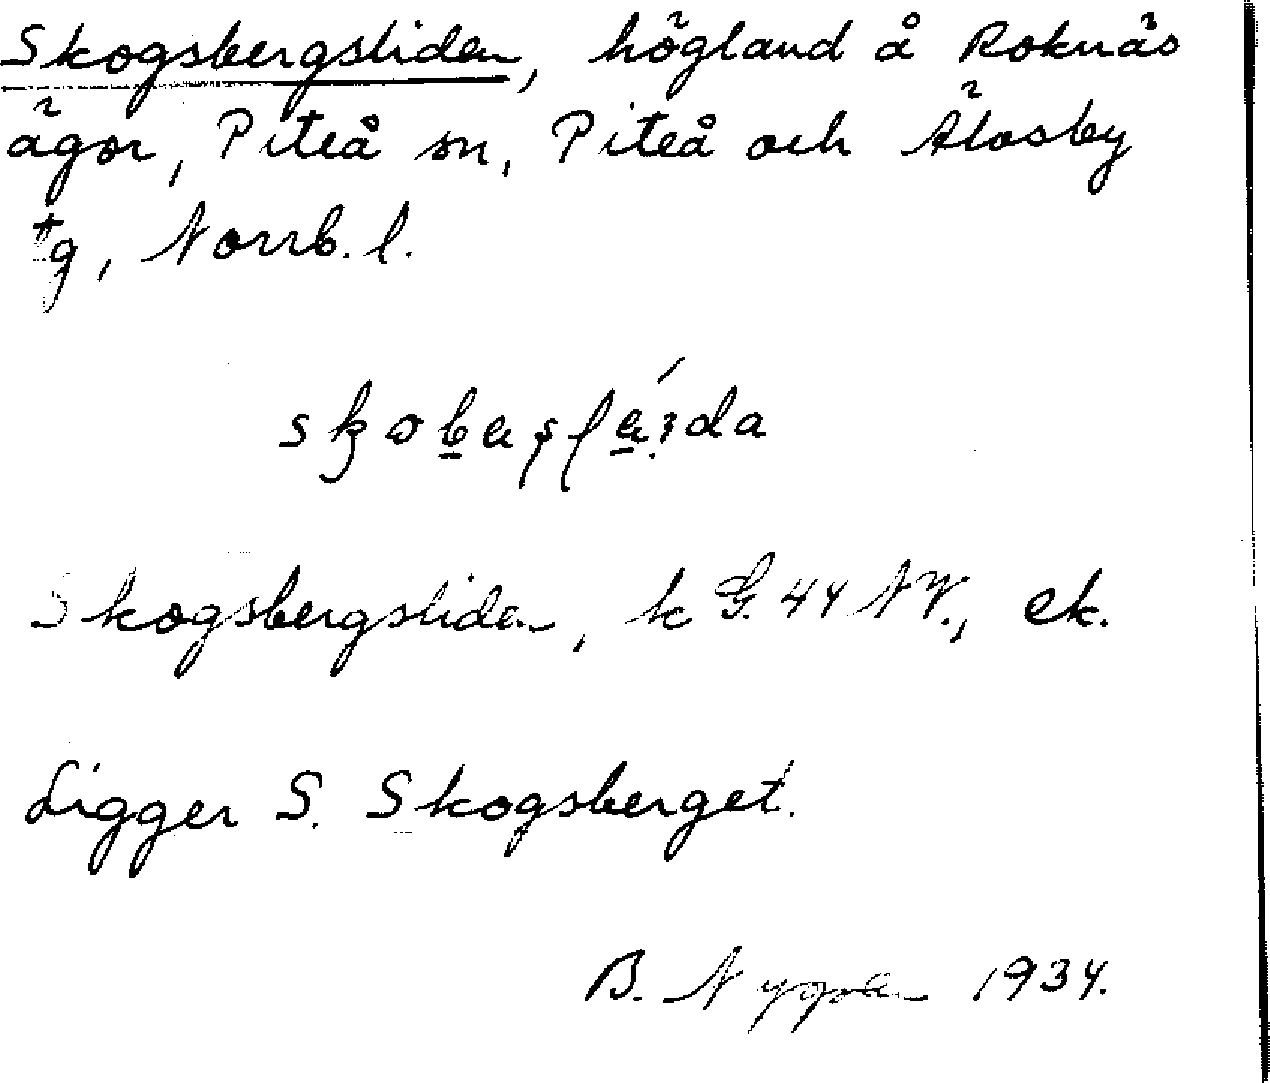 Skogsbergsliden, högland å Roknäs
ägor, Piteå sn, Piteå och Älvsby
tg, Norrb. l.
Skogsbergsliden, k G. 44 NV., ek.
Ligger S. Skogsberget.
B. 1934.